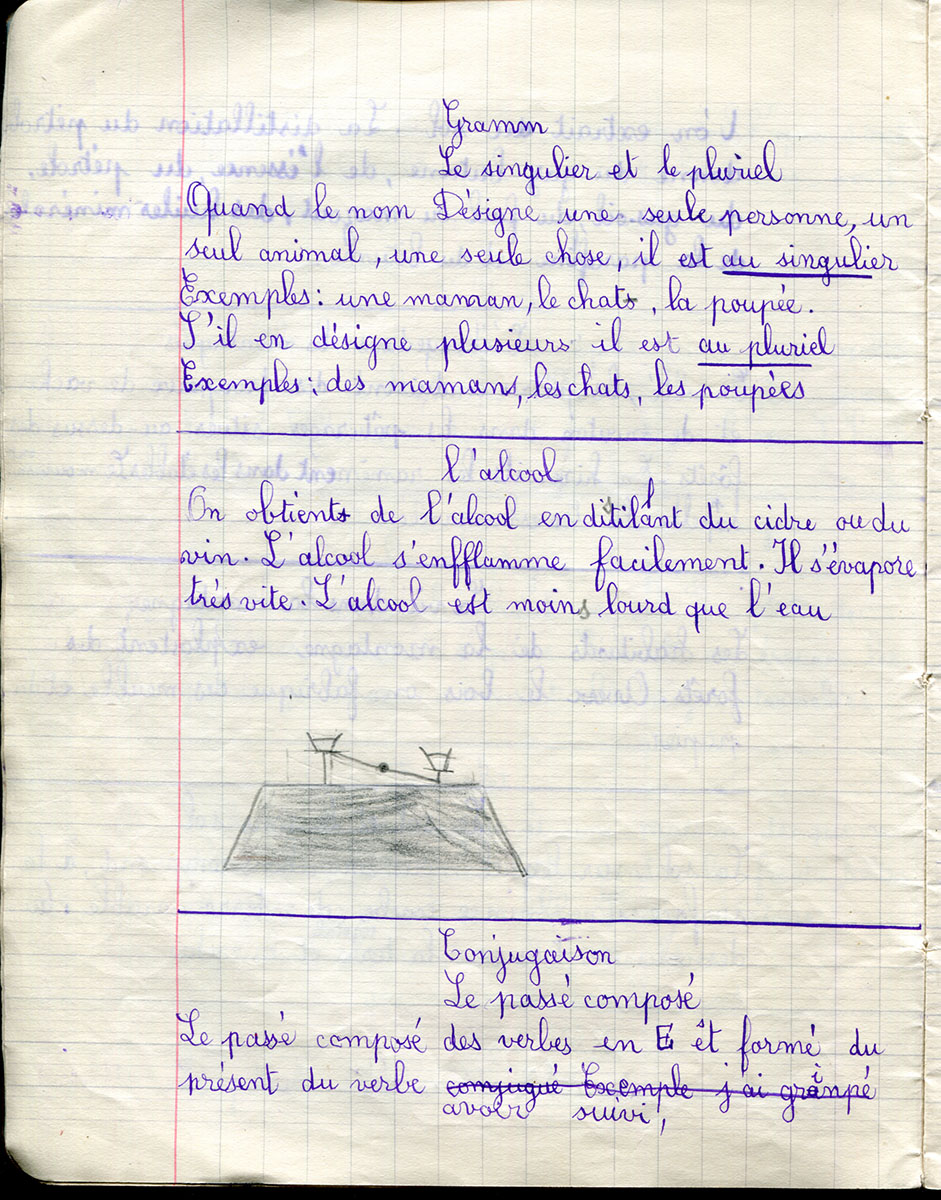 Gramm
Le singulier et le pluriel
Quand le nom Désigne une seule personne, un
seul animal, une seule chose, il est au singulier
Exemples: une maman, le chats, la poupée.
S'il en désigne plusieurs il est au pluriel
Exemples: des mamans, les chats, les poupées
l'alcool
On obtients de l'alcool en ditilant du cidre ou du
vin. L'alcool s'enfflamme facilement. Il s'évapore
trés vite. L'alcool est moins lourd que l'eau
Conjugaison
Le passé composé
Le passé composé des verbes en E êt formé du
présent du verbe conjugué Exemple j'ai grinpé
avoir suivi,